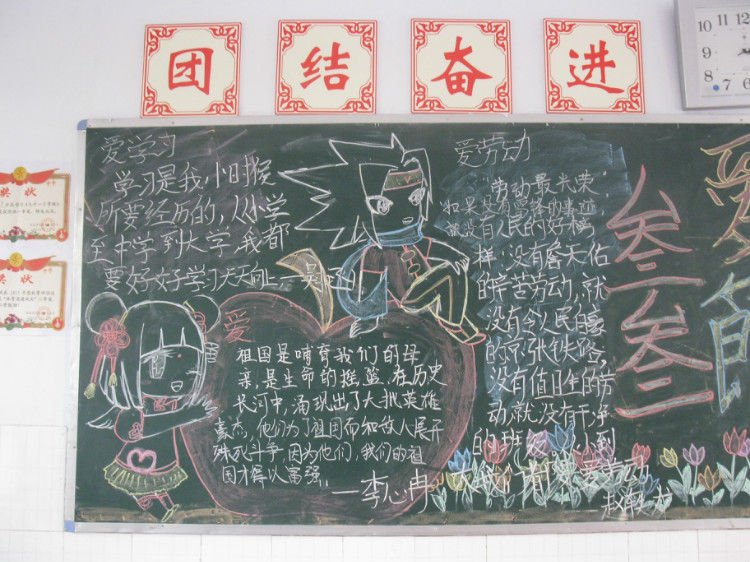 团 结 奋 进
10 11 12
9
8
7 6
奖 状
奖 状
爱学习
学习是我小时候
所要经历的,从小学
至中学到大学我都
要好好学习天天向上。
爱
祖国是哺育我们的母
亲,是生命的摇篮,在历史
长河中,涌现出了大批英雄
豪杰,他们为了祖国而和敌人展开
殊死斗争,因为他们,我们的祖
国才得以富强。
—李心冉
爱劳动
"劳动最光荣"
如果没有雷锋的事迹
就没有人民的好榜
样,没有詹天佑
的辛苦劳动,就
没有令人民自豪
的京张铁路,
没有值日生的劳
动,就没有干净
的班级。小到
爱劳动
叁叁
爱
的